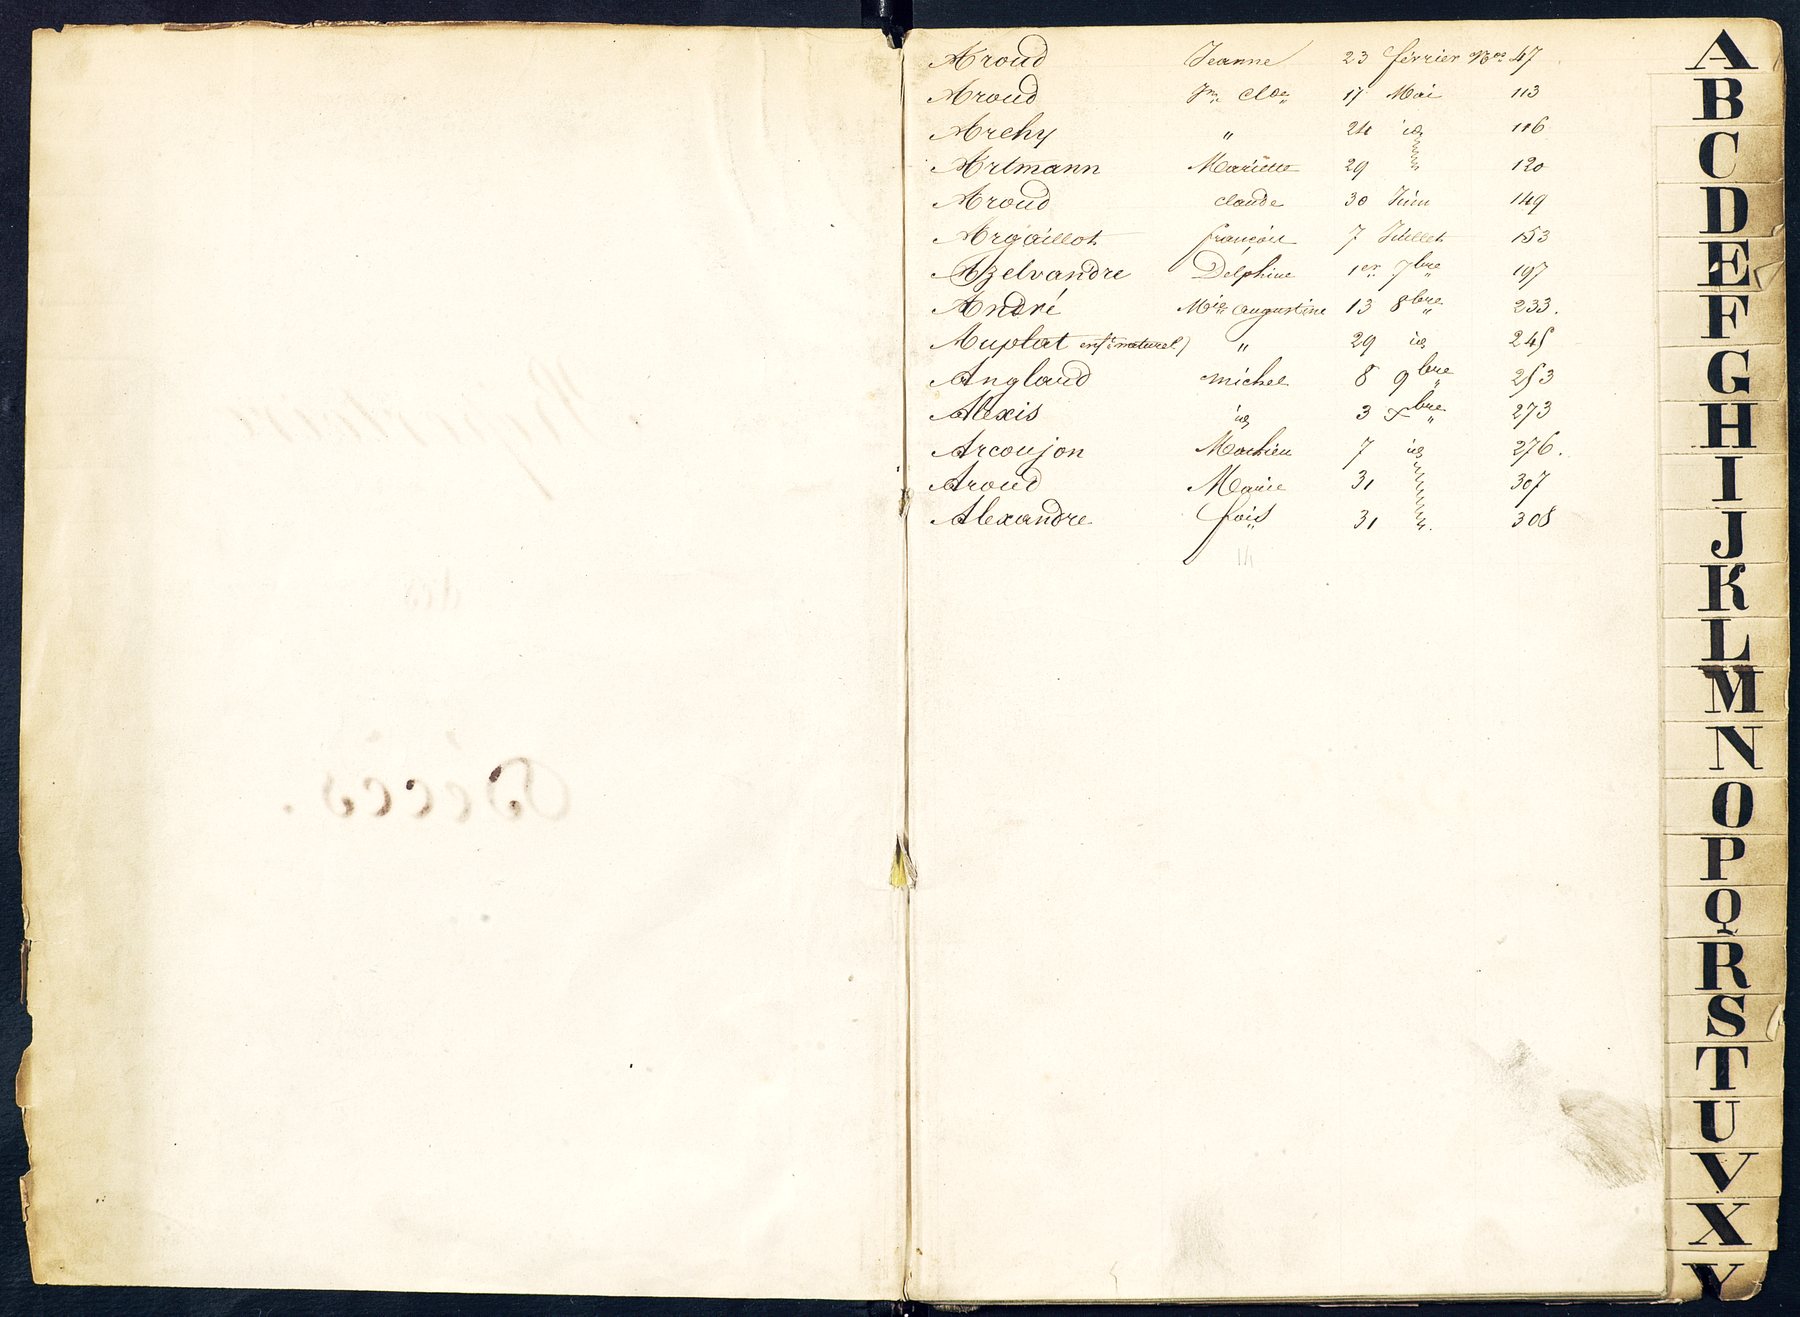 Aroud Jeanne 23 février Nos 47
Aroud Jn Clde 17 Mai 113
Archy " 24 id 116
Artmann Mariette 29 " 120
Aroud claude 30 Juin 149
Argaillot françois 7 Juillet 153
Azelvandre Delphine 1er 7bre 197
André Mie augustine 13 8bre 233.
Auplat enft naturel) " 29 id 245
Angland michel 8 9bre 253
Alexis id 3 xbre 273
Arcoujon Mathieu 7 id 276.
Aroud Marie 31 307
Alexandre fois 31 " 308
14
A
B
C
D
E
F
G
H
I
J
K
L
M
N
O
P
Q
R
S
T
U
V
X
Y